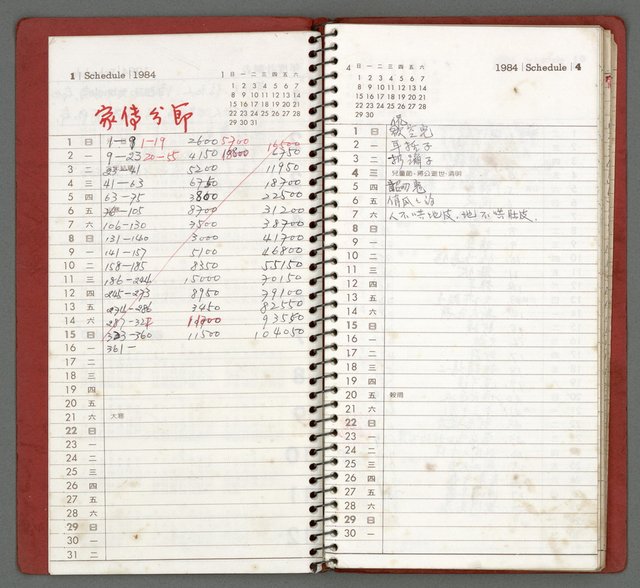 1 | Schedule | 1984
1 日 一 二 三 四 五 六
1 2 3 4 5 6 7
8 9 10 11 12 13 14
15 16 17 18 19 20 21
22 23 24 25 26 27 28
29 30 31
家傳分節
1 日 1-9 1-19 2600 5700 16500
2 一 9-23 20-55 4150 6750
3 二 41 5200 11950
4 三 41-63 6750 18700
5 四 63-75 3800 22500
6 五 -105 8700 31200
7 六 106-130 7500 38700
8 日 131-140 3000 41700
9 一 141-157 5100 46800
10 二 158-185 8350 55150
11 三 186-244 15000 70150
12 四 245-273 8950 79100
13 五 274-286 3450 82550
14 六 287-321 93550
15 日 323-360 11500 104050
16 一 361-
17 二
18 三
19 四
20 五
21 六 大寒
22 日
23 一
24 二
25 三
26 四
27 五
28 六
29 日
30 一
31 二
1984 | Schedule | 4
4 日 一 二 三 四 五 六
1 2 3 4 5 6 7
8 9 10 11 12 13 14
15 16 17 18 19 20 21
22 23 24 25 26 27 28
29 30
1 日
2 一 耳括子
3 二
4 三 兒童節·蔣公逝世·清明
5 四 韶刀鬼
6 五
7 六 人不哄地皮，地不哄肚皮。
8 日
9 一
10 二
11 三
12 四
13 五
14 六
15 日
16 一
17 二
18 三
19 四
20 五 穀雨
21 六
22 日
23 一
24 二
25 三
26 四
27 五
28 六
29 日
30 一